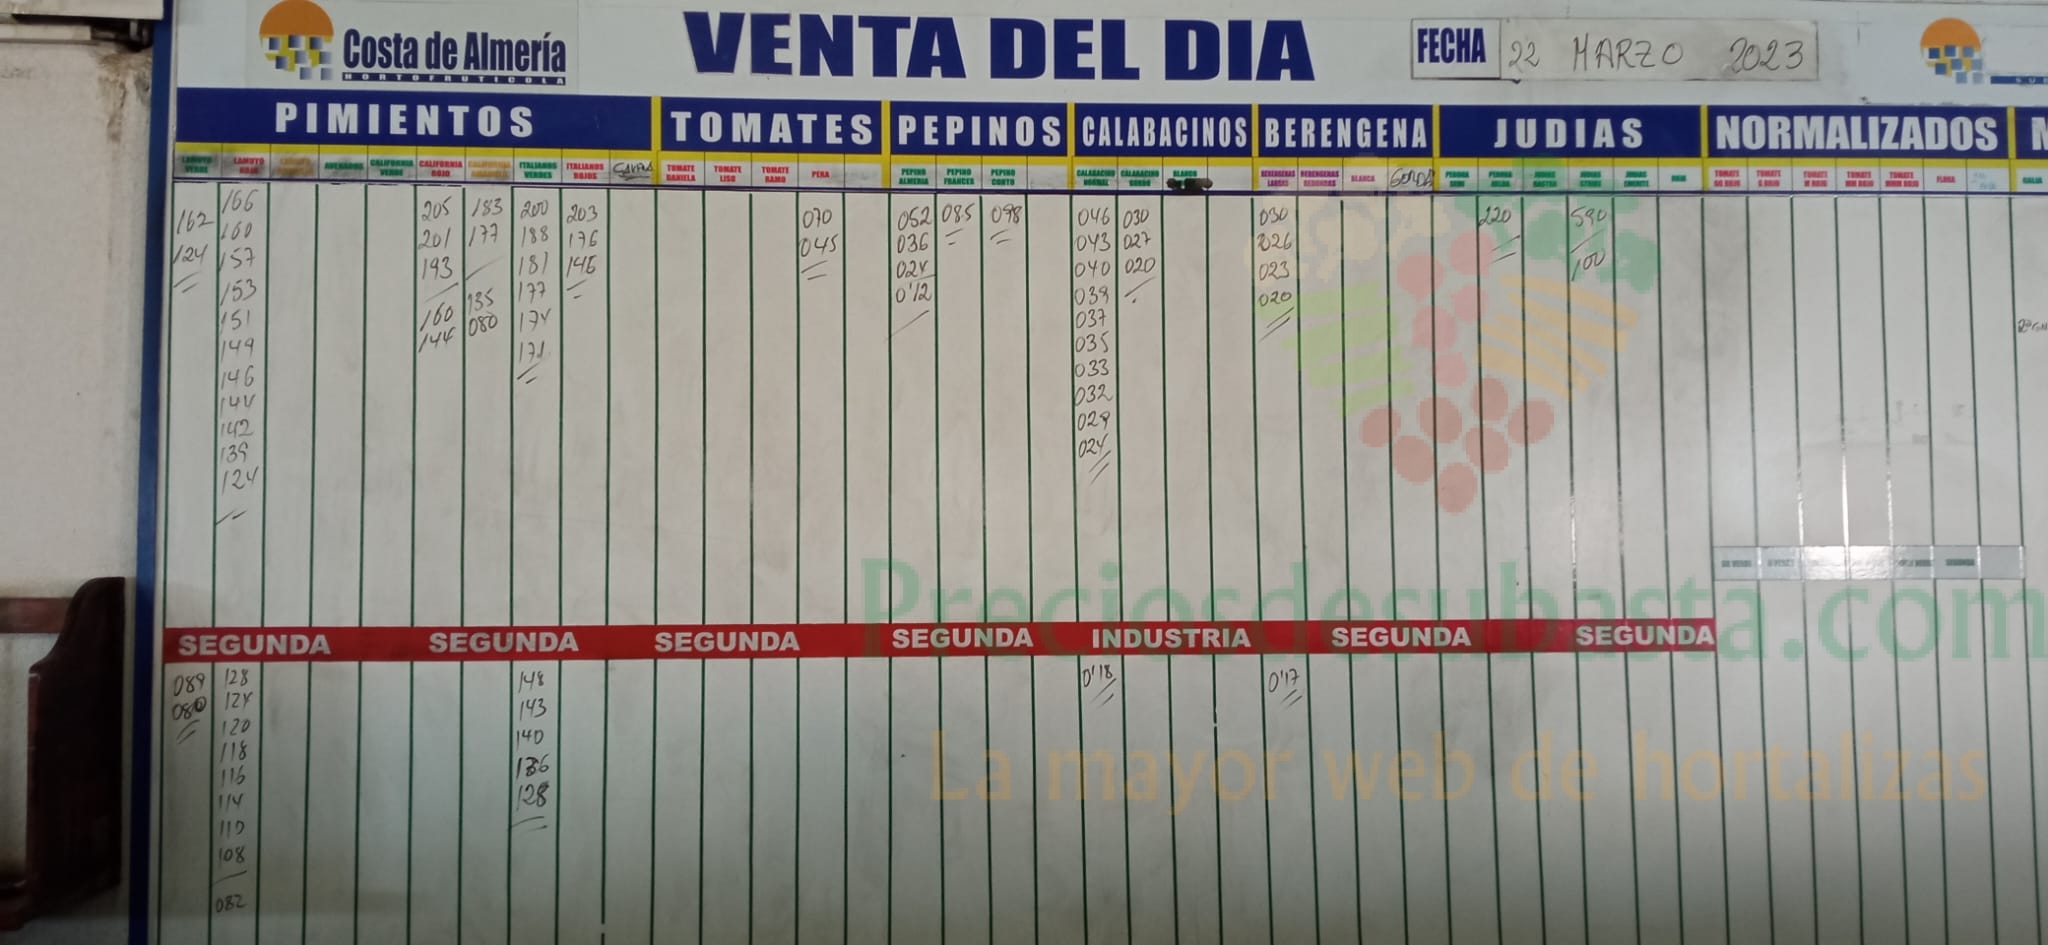 Costa de Almería
HORTOFRUTICOLA
VENTA DEL DIA
FECHA
22 MARZO 2023
PIMIENTOS TOMATES PEPINOS CALABACINOS BERENGENA JUDIAS NORMALIZADOS
LAMUYO VERDE LAMUYO ROJO CALIFORNIA VERDE CALIFORNIA ROJO CALIFORNIA AMARILLO ITALIANOS VERDES ITALIANOS ROJOS TOMATE DANIELA TOMATE LISO TOMATE RAMO PERA PEPINO ALMERIA PEPINO FRANCES PEPINO CORTO CALABACINO NORMAL CALABACINO GORDO BLANCO BERENGENAS LARGAS BERENGENAS REDONDAS BLANCA GORDA
162 166 205 183 200 203 070 052 085 098 046 030 030 220 590
124 160 201 177 188 176 045 036 043 027 026 100
157 193 181 145 024 040 020 023
153 135 177 0'12 039 020
151 160 080 174 037
149 144 171 035
146 033
144 032
142 029
139 024
124
SEGUNDA SEGUNDA SEGUNDA SEGUNDA INDUSTRIA SEGUNDA SEGUNDA
089 128 148 0'18 0'17
080 124 143
120 140
118 136
116 128
114
110
108
082
Preciosdesubasta.com
La mayor web de hortalizas